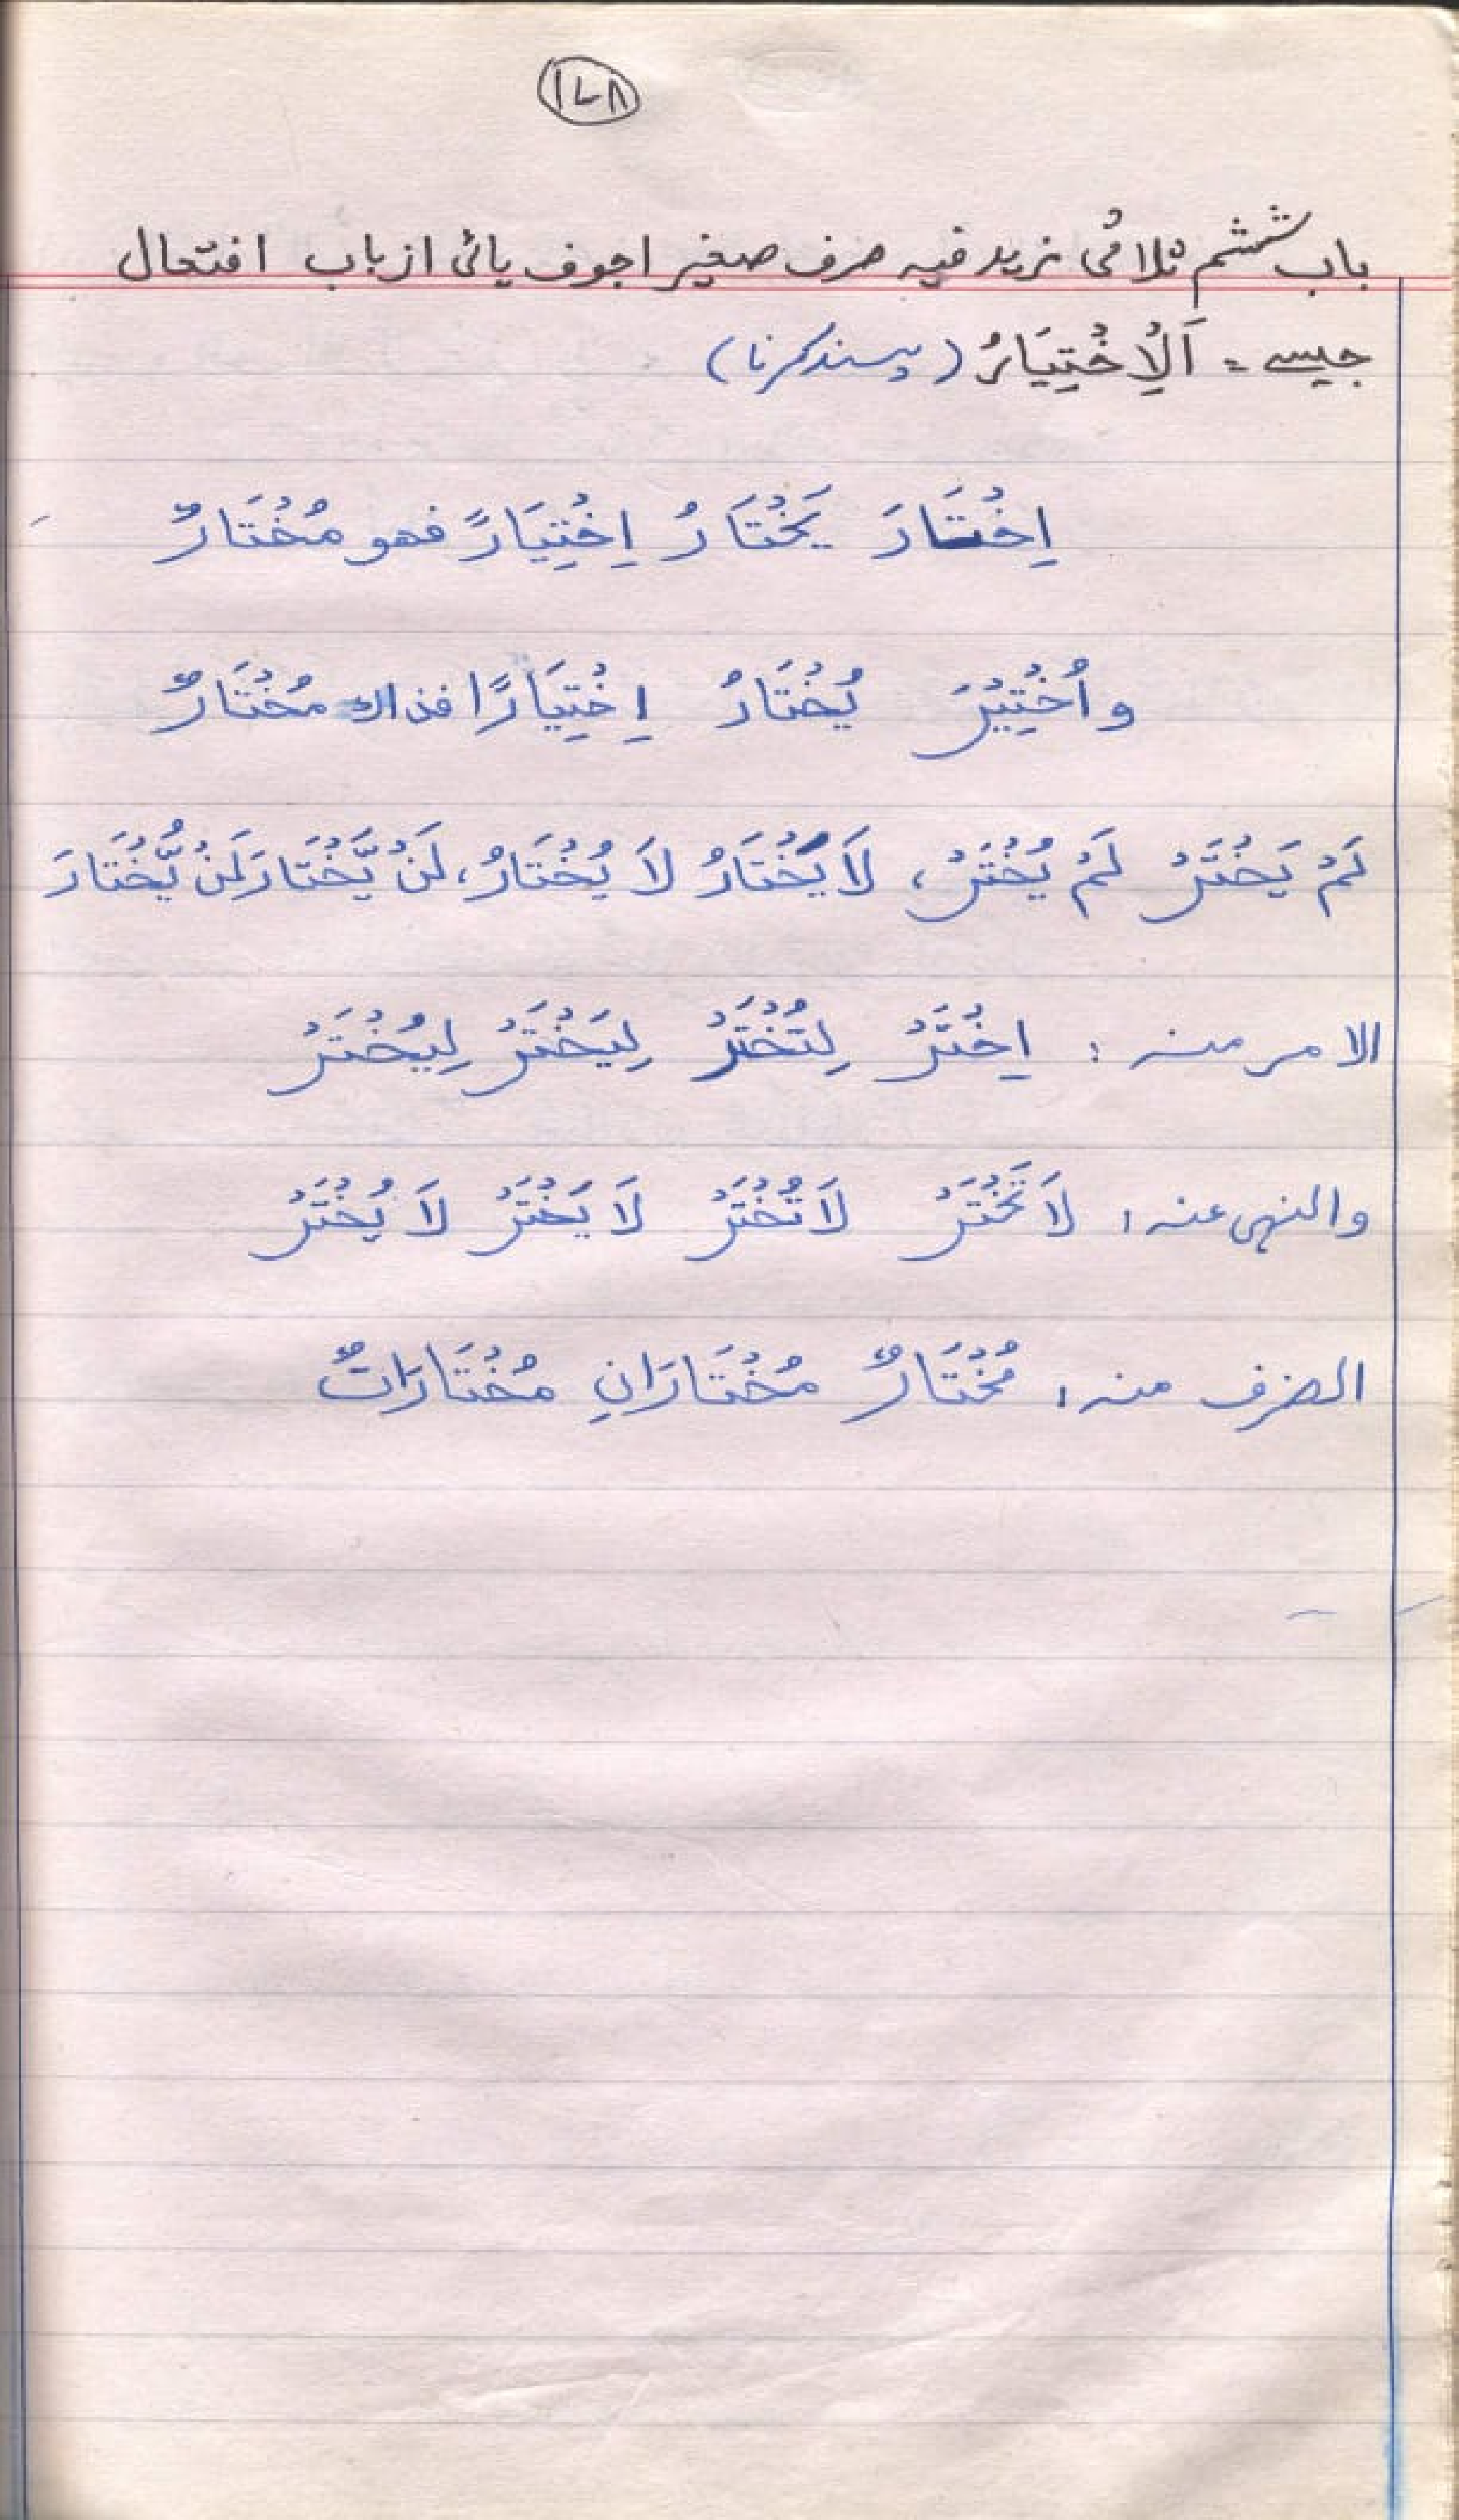 ۱۷۸
باب ششم ثلاثی مزید فیہ صرف صغیر اجوف یائی از باب افتعال
جیسے = اَلْاِخْتِیَارُ (پسند کرنا)
اِخْتَارَ یَخْتَارُ اِخْتِیَارً فهو مُخْتَارٌ
و اُخْتِیْرَ یُخْتَارُ اِخْتِیَارًا فذاك مُخْتَارٌ
لَمْ یَخْتَرْ لَمْ یُخْتَرْ، لَا یَخْتَارُ لَا یُخْتَارُ، لَنْ یَّخْتَارَ لَنْ یُّخْتَارَ
الامر منه : اِخْتَرْ لِتُخْتَرْ لِیَخْتَرْ لِیُخْتَرْ
والنهی عنه : لَا تَخْتَرْ لَا تُخْتَرْ لَا یَخْتَرْ لَا یُخْتَرْ
الظرف منه : مُخْتَارٌ مُخْتَارَانِ مُخْتَارَاتٌ